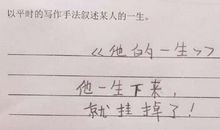 以平时的写作手法叙述某人的一生。
《他的一生》
他一生下来，
就挂掉了！